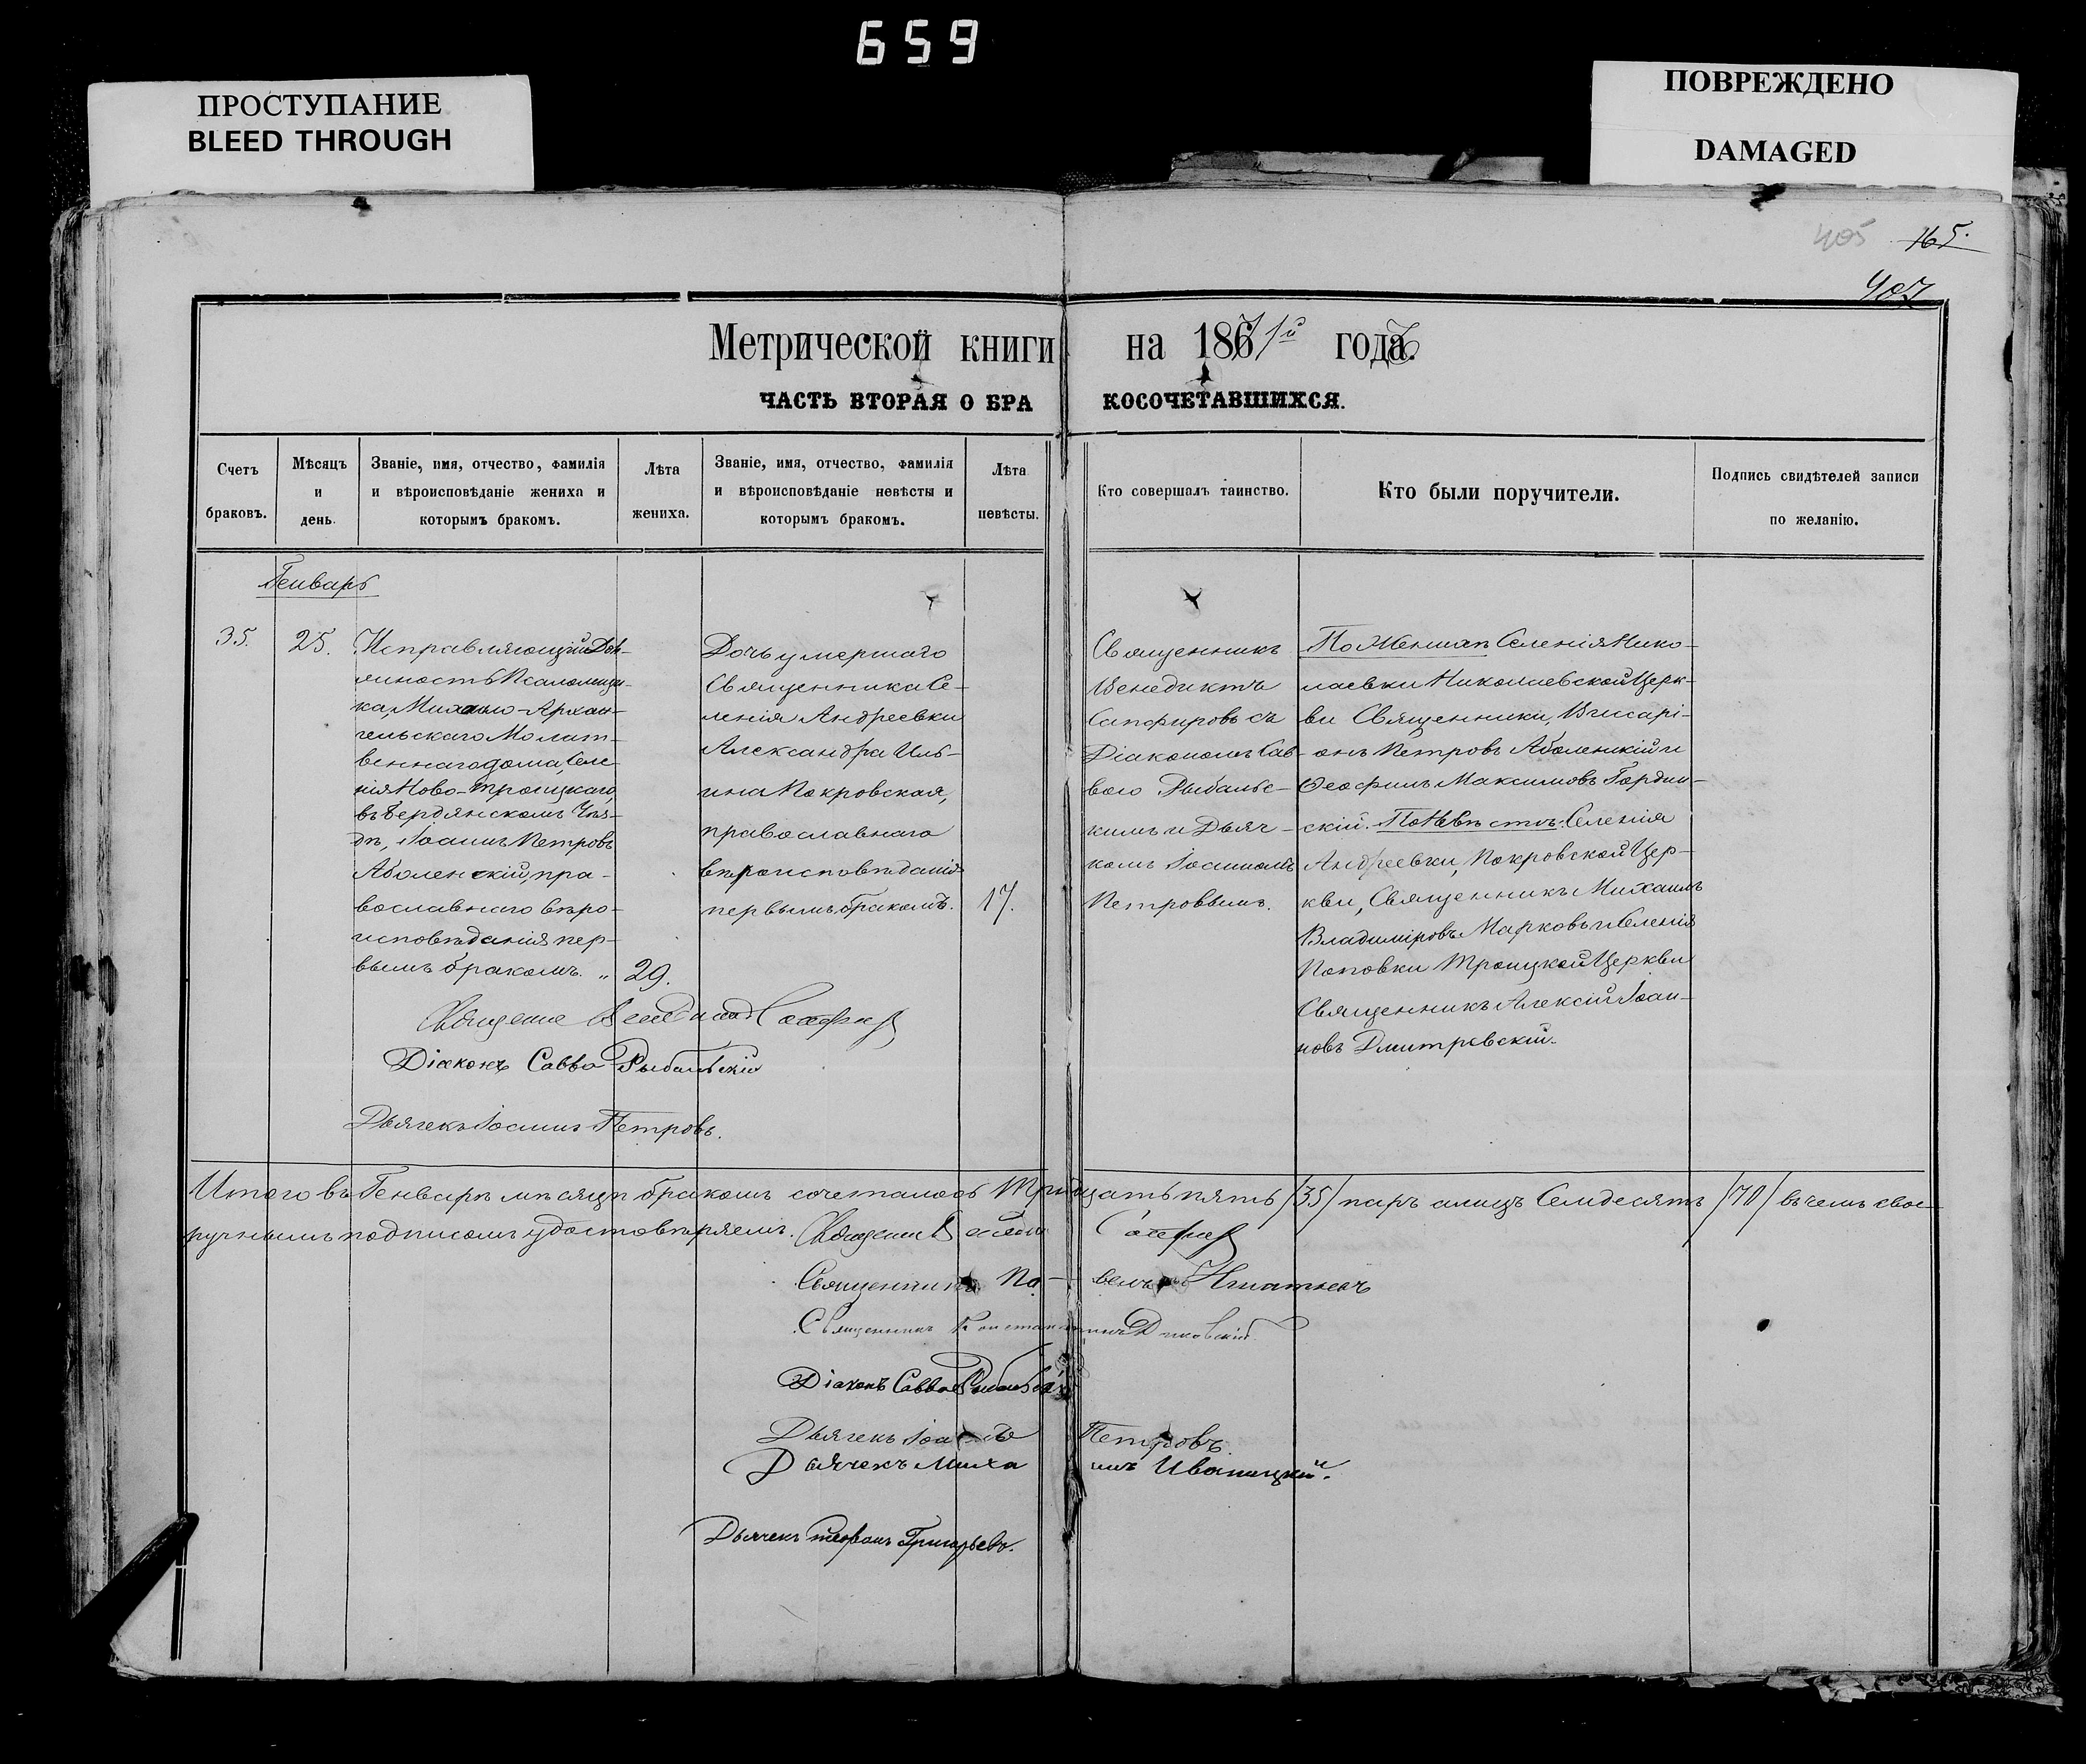 659
ПРОСТУПАНИЕ
BLEED THROUGH
ПОВРЕЖДЕНО
DAMAGED
405 165.
407
Метрической книги на 1871й годъ.
ЧАСТЬ ВТОРАЯ О БРАКОСОЧЕТАВШИХСЯ.
Счетъ
браковъ.
Мѣсяцъ
и
день.
Званіе, имя, отчество, фамилія
и вѣроисповѣданіе жениха и
которымъ бракомъ.
Лѣта
жениха.
Званіе, имя, отчество, фамилія
и вѣроисповѣданіе невѣсты и
которымъ бракомъ.
Лѣта
невѣсты.
Кто совершалъ таинство.
Кто были поручители.
Подпись свидѣтелей записи
по желанію.
Генварь
35.
25.
Исправляющій Дол-
жность Псаломщи-
ка, Михаило-Архан-
гельскаго Молит-
веннаго дома, Селе-
нія Ново-Троицкаго,
въ Бердянскомъ Уѣз-
дѣ, Іоаннъ Петровъ
Аболенскій, пра-
вославнаго вѣро-
исповѣданія пер-
вымъ бракомъ. „
29.
Дочь умершаго
Священника Се-
ленія Андреевки
Александра Иль-
ина Покровская,
православнаго
вѣроисповѣданія
первымъ бракомъ.
17.
Священникъ
Венедиктъ
Сапфировъ съ
Діакономъ Сав-
вою Рыбальс-
кимъ и Дьяч-
комъ Іоанномъ
Петровымъ.
По Женихѣ Селенія Нико-
лаевки Николаевской Церк-
ви Священники, Виссарі-
онъ Петровъ Аболенскій и
Ѳеофилъ Максимовъ Гордин-
скій. По Невѣстѣ: Селенія
Андреевки, Покровской Цер-
кви, Священникъ Михаилъ
Владиміровъ Марковъ и Селенія
Поповки Троицкой Церкви
Священникъ Алексій Іоан-
новъ Дмитревскій.
Священникъ Венедиктъ Сапфир
Діаконъ Савва Рыбальскій
Дьячекъ Іоаннъ Петровъ.
Итого въ Генварѣ мѣсяцѣ бракомъ сочеталось Тридцать пять /35/ паръ а лицъ Семдесятъ /70/ въ чемъ свое-
ручнымъ подписомъ удостовѣряемъ. Священникъ Венедиктъ Сапфир
Священникъ Павелъ Игнатьевъ
Священникъ Константинъ Диковскій
Діаконъ Савва Рыбальскій
Дьячекъ Іоаннъ Петровъ.
Дьячекъ Михаилъ Иваницкій.
Дьячекъ Григорьевъ.